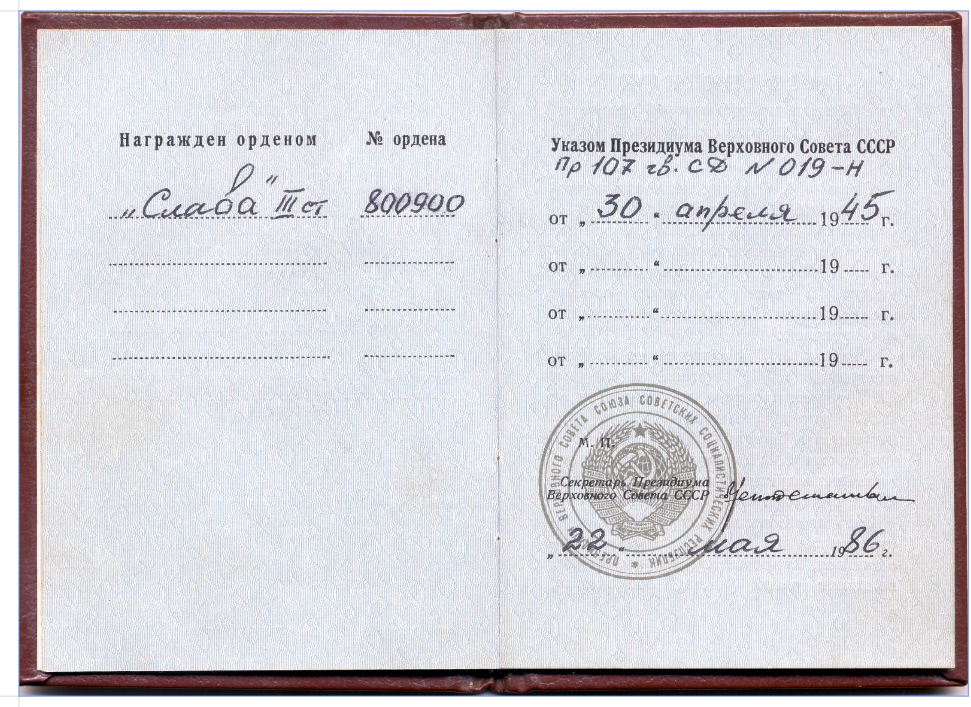 Награжден орденом
№ ордена
„Слава" III ст
800900
Указом Президиума Верховного Совета СССР
Пр 107 гв. СД N 019-Н
от „ 30 “ апреля 1945 г.
от „ “ 19 г.
от „ “ 19 г.
от „ “ 19 г.
ПРЕЗИДИУМ ВЕРХОВНОГО СОВЕТА СОЮЗА СОВЕТСКИХ СОЦИАЛИСТИЧЕСКИХ РЕСПУБЛИК
М. П.
Секретарь Президиума
Верховного Совета СССР
„ 22 “ мая 1986 г.